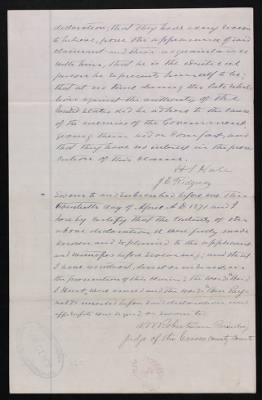 declaration; that they have every reason
to believe, from the appearance of said
claimant and their acquaintance
with him, that he is the identical
person he represents himself to be;
that at no time during the late rebel-
lion against the authority of the
United States did he adhere to the cause
of the enemies of the Government
giving them aid or comfort, and
that they have no interest in the prose-
cution of this claim.
H S Hale
J E Ridgway
Sworn to and subscribed before me this
day of April A.D. 1871 and I
hereby certify that the contents of the
above declaration &c were fully made
known and explained to the applicant
and witnesses before swearing; and that
I have no interest, direct or indirect, in
the prosecution of this claim; the word
and the words
inserted before said declaration and
affidavits was signed or sworn to
Robertson
Judge of the County Court